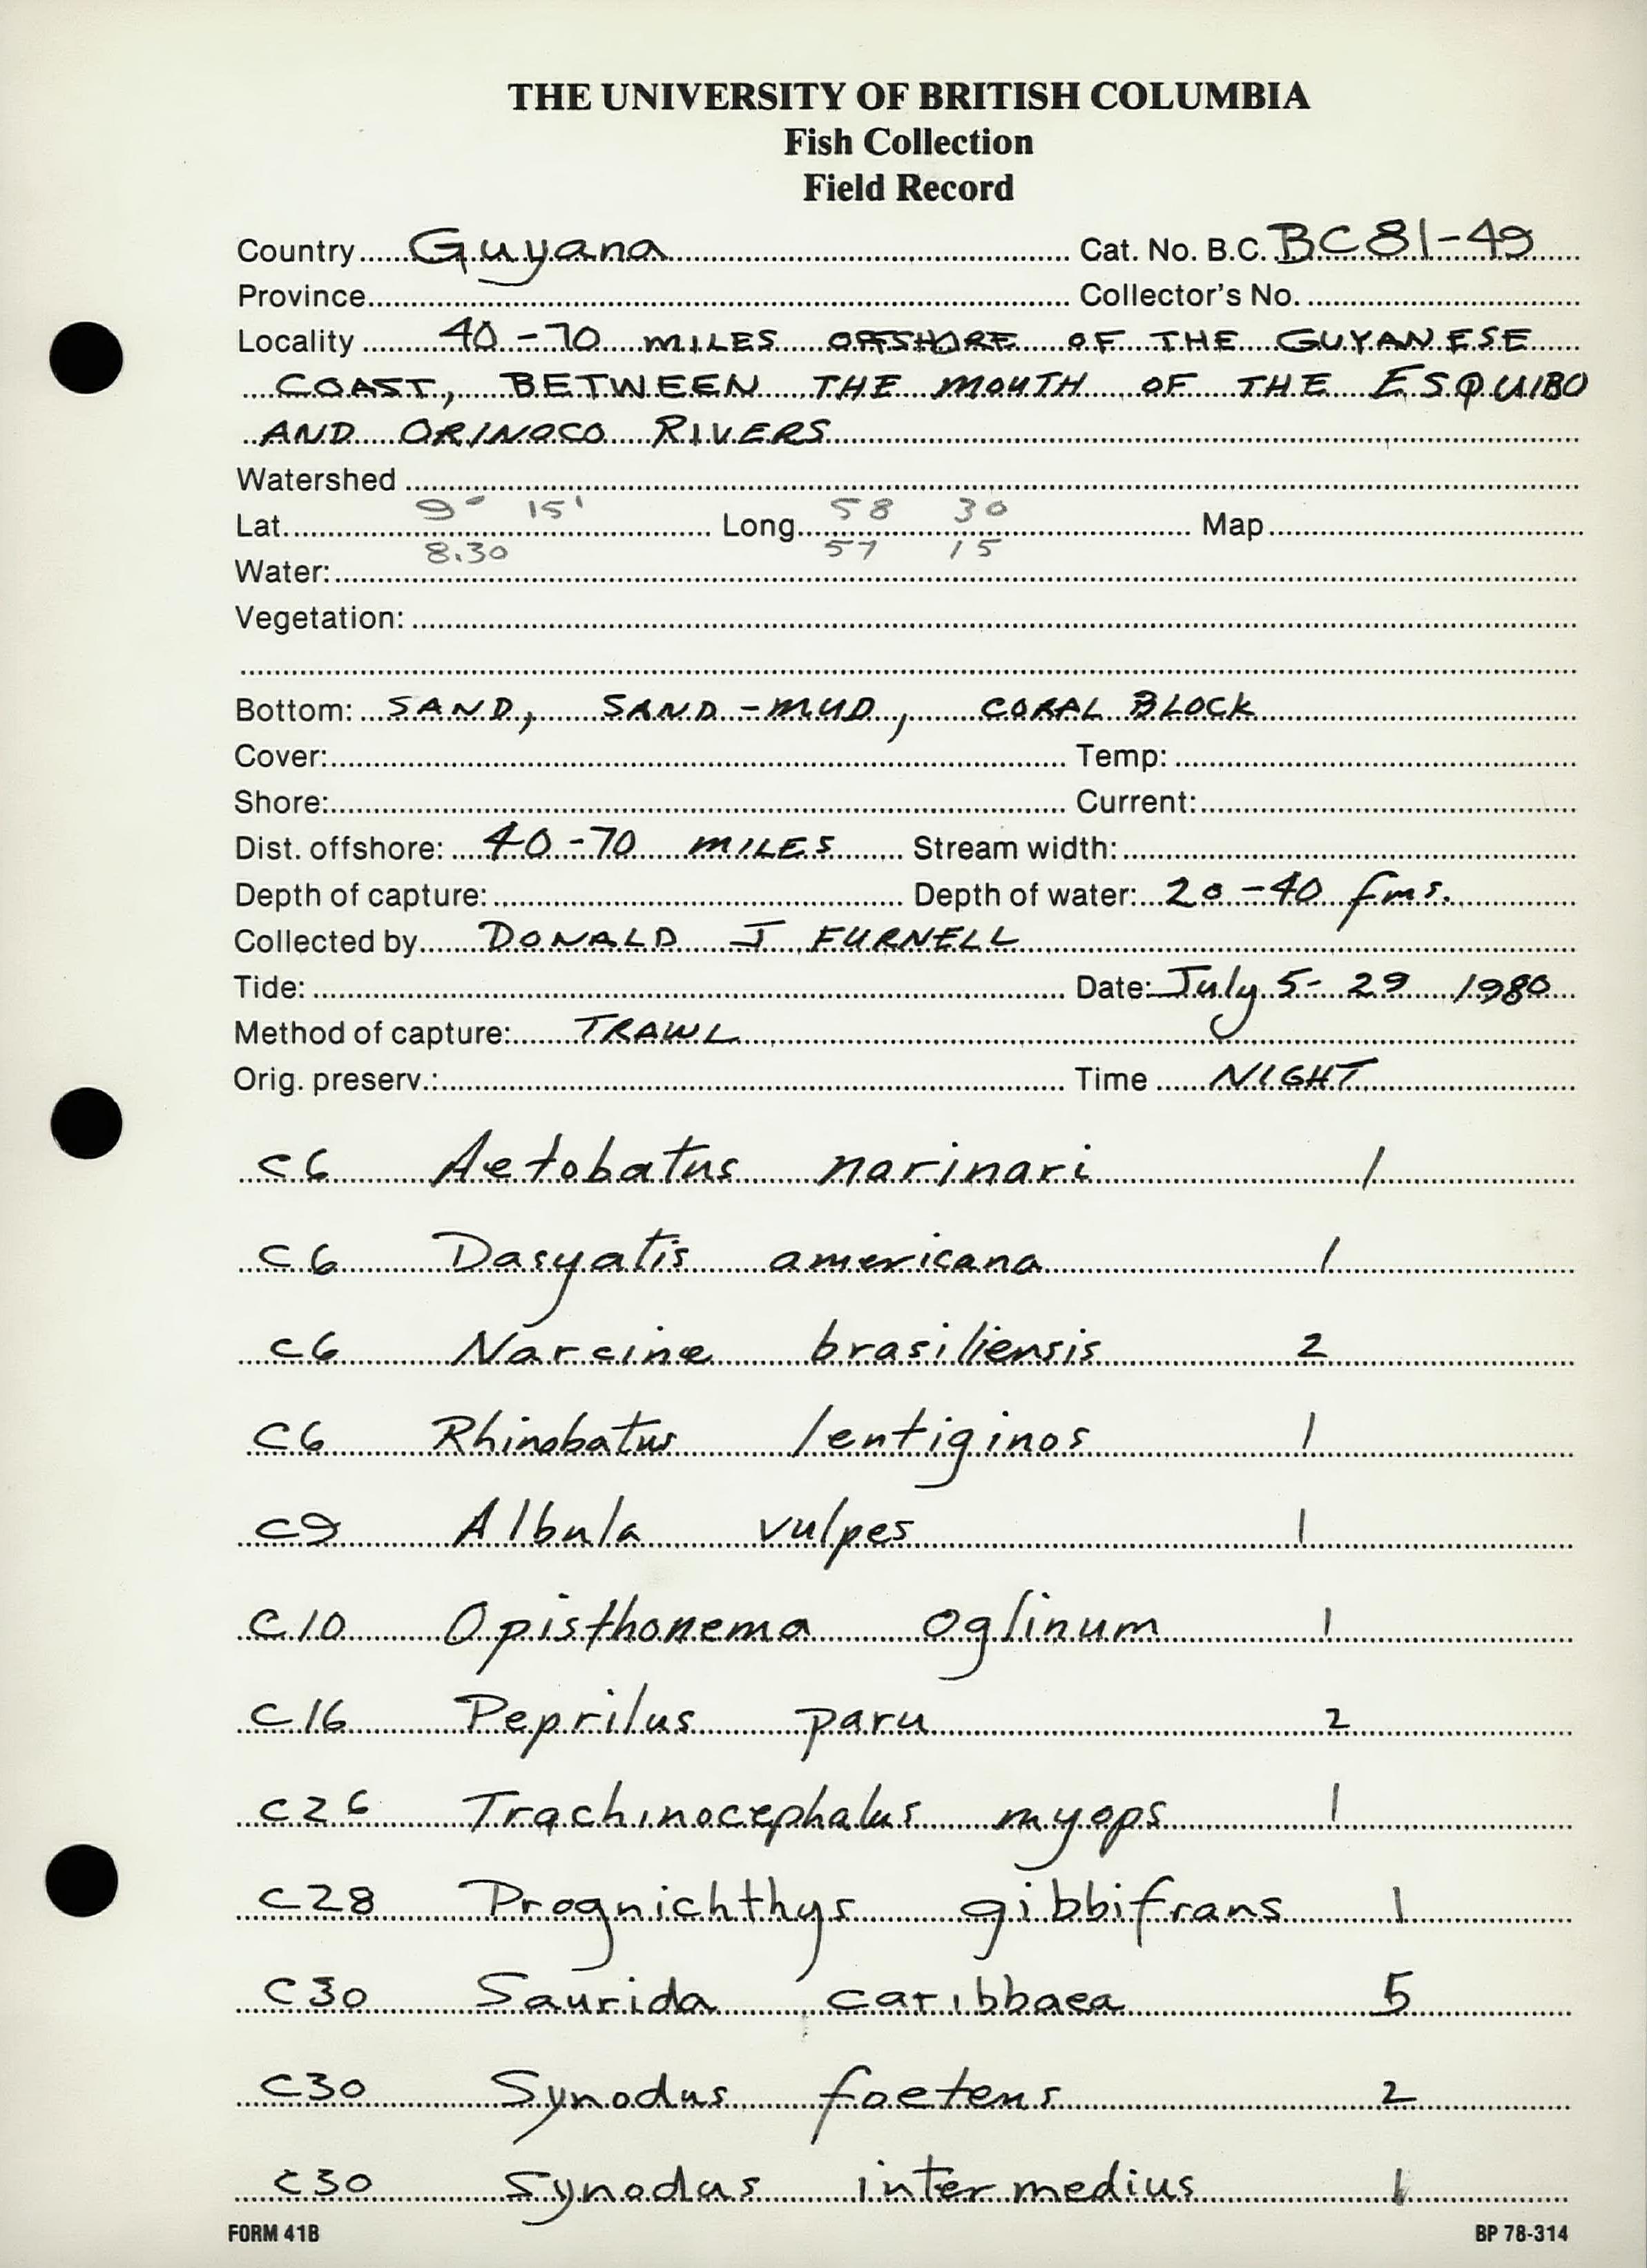 THE UNIVERSITY OF BRITISH COLUMBIA
Fish Collection
Field Record
Country Guyana Cat. No. B.C. BC81-49
Province Collector's No.
Locality 40-70 MILES OFFSHORE OF THE GUYANESE
COAST, BETWEEN THE MOUTH OF THE ESQUIBO
AND ORINOCO RIVERS
Watershed
9° 15' 58 30
Lat. Long. Map
8.30 57 15
Water:
Vegetation:
Bottom: SAND, SAND-MUD, CORAL BLOCK
Cover: Temp:
Shore: Current:
Dist. offshore: 40-70 MILES Stream width:
Depth of capture: Depth of water: 20-40 fms.
Collected by DONALD J FURNELL
Tide: Date: July 5-29 1980
Method of capture: TRAWL
Orig. preserv.: Time NIGHT
C6 Aetobatus narinari 1
C6 Dasyatis americana 1
C6 Narcine brasiliensis 2
C6 Rhinobatus lentiginos 1
C9 Albula vulpes 1
C10 Opisthonema oglinum 1
C16 Peprilus paru 2
C26 Trachinocephalus myops 1
C28 Prognichthys gibbifrans 1
C30 Saurida caribbaea 5
C30 Synodus foetens 2
C30 Synodus intermedius 1
FORM 41B BP 78-314